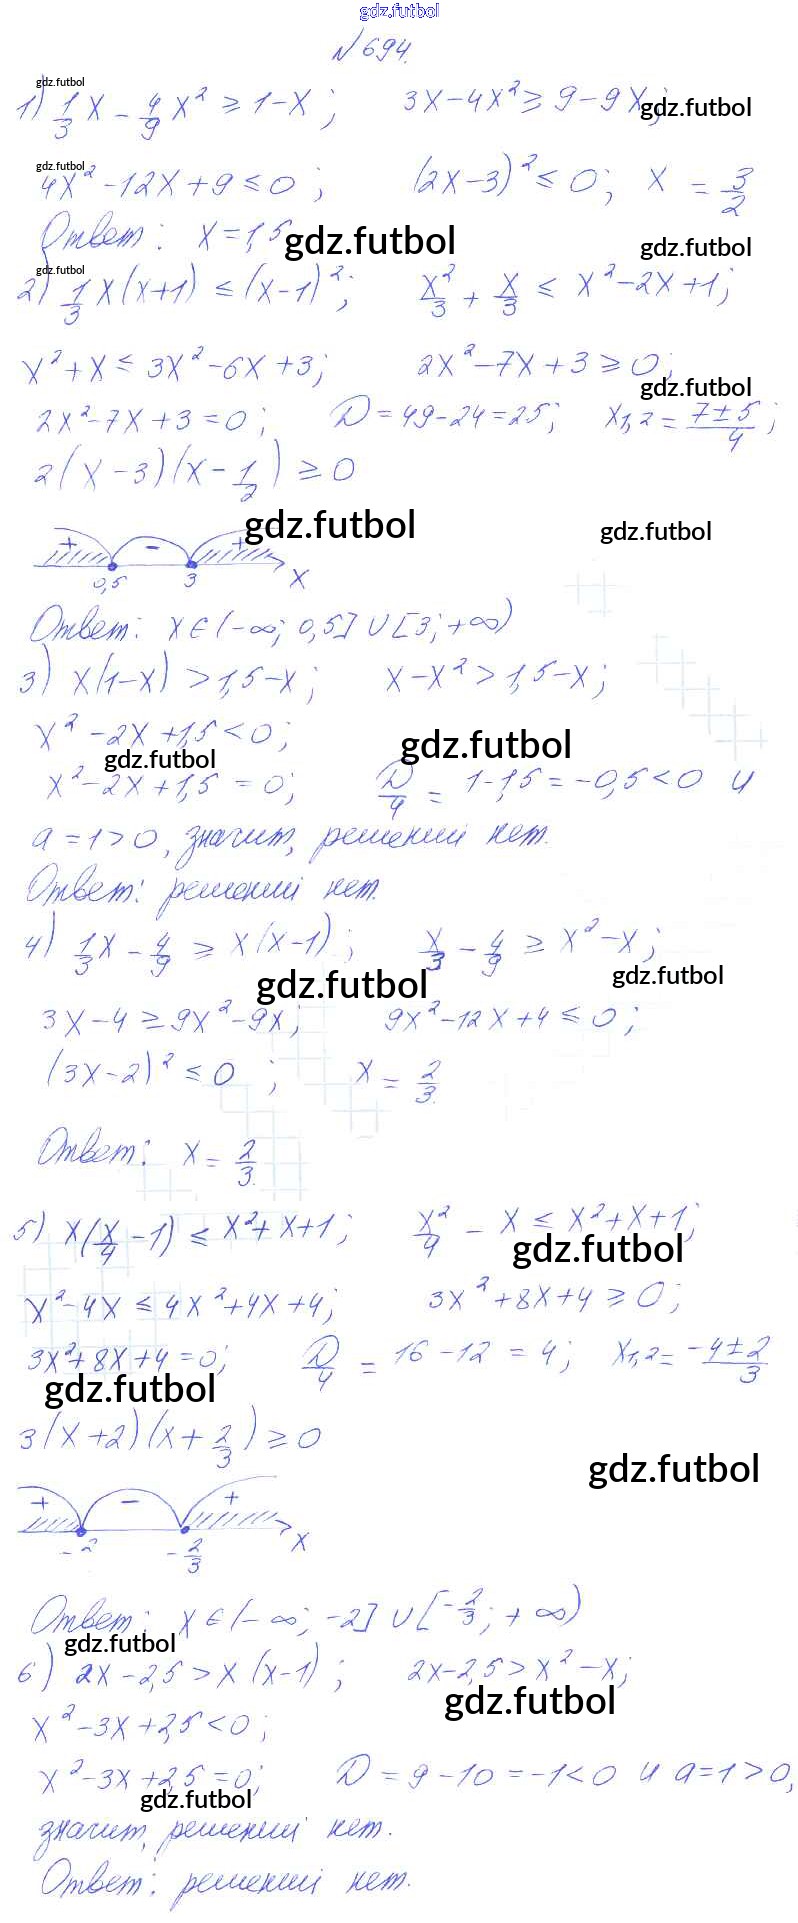 gdz.futbol
№ 694.
gdz.futbol
1) 1/3 x - 4/9 x² ≥ 1 - x; 3x - 4x² ≥ 9 - 9x; gdz.futbol
gdz.futbol
4x² - 12x + 9 ≤ 0; (2x - 3)² ≤ 0; x = 3/2
Ответ: x = 1,5 gdz.futbol gdz.futbol
gdz.futbol
2) 1/3 x(x+1) ≤ (x-1)²; x²/3 + x/3 ≤ x² - 2x + 1;
x² + x ≤ 3x² - 6x + 3; 2x² - 7x + 3 ≥ 0;
gdz.futbol
2x² - 7x + 3 = 0; D = 49 - 24 = 25; x1,2 = 7 ± 5/4;
2(x - 3)(x - 1/2) ≥ 0
gdz.futbol gdz.futbol
+ - +
0,5 3 x
Ответ: x ∈ (-∞; 0,5] ∪ [3; +∞)
3) x(1-x) > 1,5 - x; x - x² > 1,5 - x;
x² - 2x + 1,5 < 0;
gdz.futbol gdz.futbol
x² - 2x + 1,5 = 0; D/4 = 1 - 1,5 = -0,5 < 0 и
a = 1 > 0, значит, решений нет.
Ответ: решений нет.
4) 1/3 x - 4/9 ≥ x(x-1); x/3 - 4/9 ≥ x² - x;
gdz.futbol gdz.futbol
3x - 4 ≥ 9x² - 9x; 9x² - 12x + 4 ≤ 0;
(3x - 2)² ≤ 0; x = 2/3.
Ответ: x = 2/3.
5) x(x/4 - 1) ≤ x² + x + 1; x²/4 - x ≤ x² + x + 1;
gdz.futbol
x² - 4x ≤ 4x² + 4x + 4; 3x² + 8x + 4 ≥ 0;
3x² + 8x + 4 = 0; D/4 = 16 - 12 = 4; x1,2 = -4 ± 2/3
gdz.futbol
3(x + 2)(x + 2/3) ≥ 0
gdz.futbol
+ - +
-2 -2/3 x
Ответ: x ∈ (-∞; -2] ∪ [-2/3; +∞)
gdz.futbol
6) 2x - 2,5 > x(x-1); 2x - 2,5 > x² - x;
gdz.futbol
x² - 3x + 2,5 < 0;
x² - 3x + 2,5 = 0; D = 9 - 10 = -1 < 0 и a = 1 > 0,
gdz.futbol
значит, решений нет.
Ответ: решений нет.